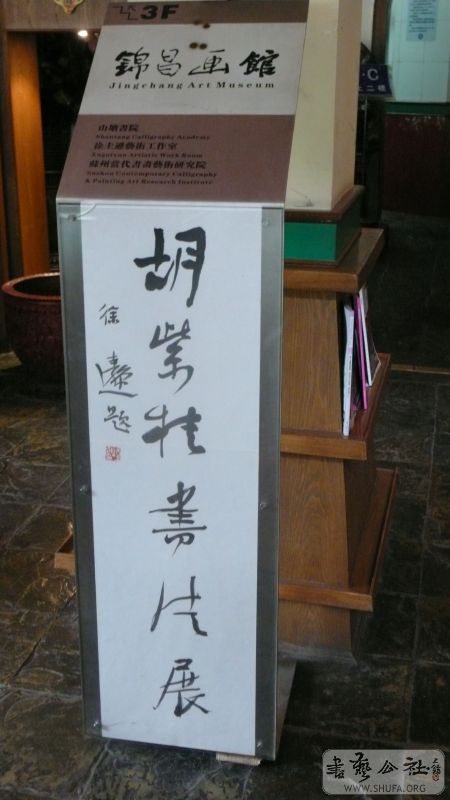 3F
錦昌画館
Jingchang Art Museum
山塘書院
Shantang Calligraphy Academy
徐圭逊藝術工作室
Xuguixun Artistic Work Room
蘇州當代書畫藝術研究院
Suzhou Contemporary Calligraphy
& Painting Art Research Institute
胡紫桂書法展
徐 題
C
上二楼
書藝公社
WWW.SHUFA.ORG